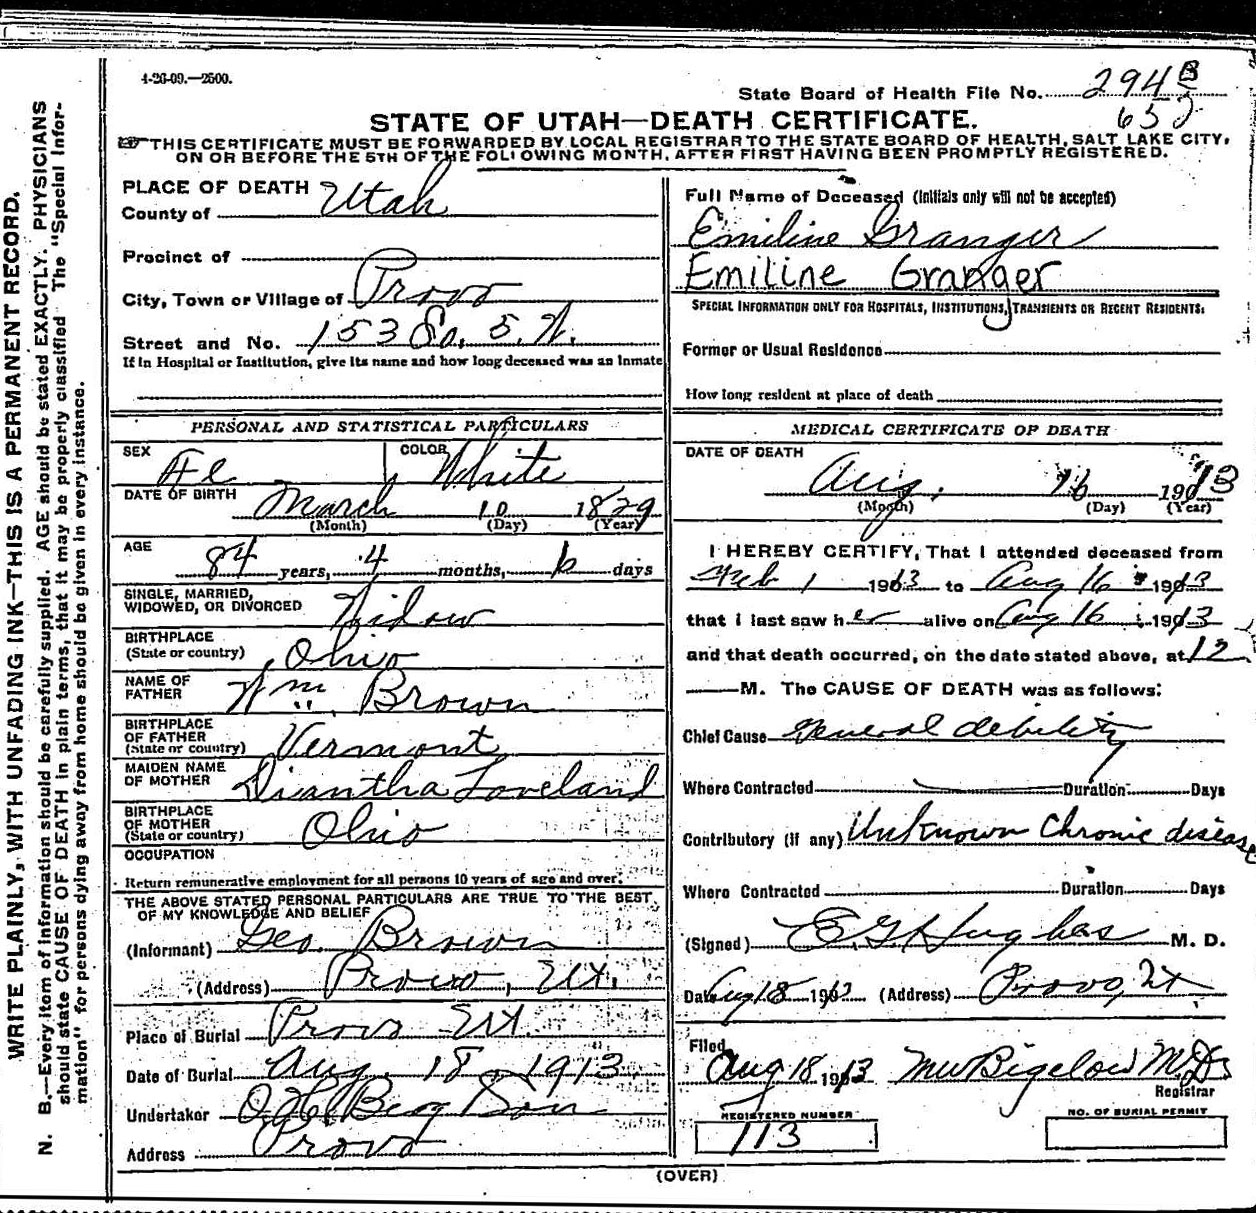 4-26-09.—2500.
State Board of Health File No. 294 B
652
STATE OF UTAH—DEATH CERTIFICATE.
☞THIS CERTIFICATE MUST BE FORWARDED BY LOCAL REGISTRAR TO THE STATE BOARD OF HEALTH, SALT LAKE CITY,
ON OR BEFORE THE 5TH OF THE FOLLOWING MONTH, AFTER FIRST HAVING BEEN PROMPTLY REGISTERED.
WRITE PLAINLY, WITH UNFADING INK—THIS IS A PERMANENT RECORD.
N. B.—Every item of information should be carefully supplied. AGE should be stated EXACTLY. PHYSICIANS
should state CAUSE OF DEATH in plain terms, that it may be properly classified The "Special Infor-
mation" for persons dying away from home should be given in every instance.
PLACE OF DEATH
County of Utah
Precinct of
City, Town or Village of Provo
Street and No. 153 So. 5. W.
If in Hospital or Institution, give its name and how long deceased was an inmate
Full Name of Deceased (initials only will not be accepted)
Emiline Granger
Emiline Granger
SPECIAL INFORMATION ONLY FOR HOSPITALS, INSTITUTIONS, TRANSIENTS OR RECENT RESIDENTS:
Former or Usual Residence
How long resident at place of death
PERSONAL AND STATISTICAL PARTICULARS
SEX Fe COLOR White
DATE OF BIRTH March 10 1829
(Month) (Day) (Year)
AGE 84 years, 4 months, 6 days
SINGLE, MARRIED,
WIDOWED, OR DIVORCED Widow
BIRTHPLACE
(State or country) Ohio
NAME OF
FATHER Wm. Brown
BIRTHPLACE
OF FATHER
(State or country) Vermont
MAIDEN NAME
OF MOTHER Diantha Loveland
BIRTHPLACE
OF MOTHER
(State or country) Ohio
OCCUPATION
Return remunerative employment for all persons 10 years of age and over.
THE ABOVE STATED PERSONAL PARTICULARS ARE TRUE TO THE BEST
OF MY KNOWLEDGE AND BELIEF
(Informant) Geo. Brown
(Address) Provo, Ut.
Place of Burial Provo Ut
Date of Burial Aug. 18, 1913
Undertaker O. H. Berg Son
Address Provo
MEDICAL CERTIFICATE OF DEATH
DATE OF DEATH
Aug. 16 190 13
(Month) (Day) (Year)
I HEREBY CERTIFY, That I attended deceased from
Feb 1 1913 to Aug 16 1913
that I last saw her alive on Aug 16 1913
and that death occurred, on the date stated above, at 12
M. The CAUSE OF DEATH was as follows:
Chief Cause General debility
Where Contracted Duration Days
Contributory (if any) Unknown Chronic disease
Where Contracted Duration Days
(Signed) E. G. Hughes M. D.
Date Aug 18 1913 (Address) Provo, Ut
Filed
Aug 18 1913 M W Bigelow M.D.
Registrar
REGISTERED NUMBER
113
NO. OF BURIAL PERMIT
(OVER)